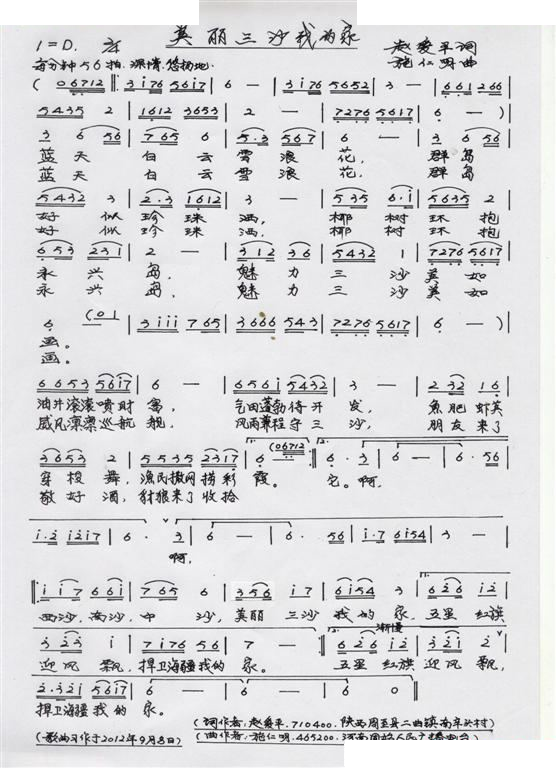 美丽三沙我的家
1=D 2/4 赵爱平词
每分钟56拍 深情.悠扬地. 施仁明曲
( 06712 ‖: 3i76 56i7 | 6 — | 3i76 5652 | 3 — | 661 266 |
5435 2 | 1612 3653 | 2 — | 7276 5617 | 6 — ) |
3 6 56 | 765 6 | 5.3 567 | 6 — | 3 6 56 |
蓝天 白云 雪浪 花, 群岛
蓝天 白云 雪浪 花, 群岛
5432 3 | 2.3 1612 | 3 — | 535 6.i | 5635 2 |
好似 珍珠 洒, 椰树 环抱
好似 珍珠 洒, 椰树 环抱
653 231 | 2 — | 312 36 | 5432 1 | 7276 5617 |
永兴 岛, 魅力 三沙 美如
永兴 岛, 魅力 三沙 美如
6 (01 | 3iii 765 | 3666 543 | 7276 5617 | 6 — ) |
画。
画。
6653 56i7 | 6 — | 656i 5432 | 3 — | 2 32 16 |
油井滚滚喷财富, 气田蓬勃待开发, 鱼肥虾美
威风凛凛巡航舰, 风雨兼程守三沙, 朋友来了
3653 2 | 5535 2317 | 1. 6 (06712 :‖ 2. 6.3 | 6 — | 6.56 |
穿梭舞, 渔民撒网捞彩霞。 它。啊,
敬好酒, 豺狼来了收拾
i.2 i2i7 | 6.3 | 6 — | 6 — | 6.56 | i.7 6i54 | 3 — |
啊,
‖: i i 7 66i | 765 6 | 356 i7 | 6i54 3 | 1. 626 i2 |
西沙,南沙,中沙, 美丽三沙我的家, 五星红旗
渐慢
3 23 i | 7i76 56 | 7 — :‖ 2. 626 i2 | 323i 2 |
迎风飘, 捍卫海疆我的家。 五星红旗迎风飘,
2.32i 56i7 | 6 — | 6 — | 6 — | 6 0 ‖
捍卫海疆我的家。
(词作者:赵爱平.710400.陕西周至县二曲镇南辛头村)
(歌曲习作于2012年9月8日) (曲作者:施仁明.465200.河南固始人民广播电台)